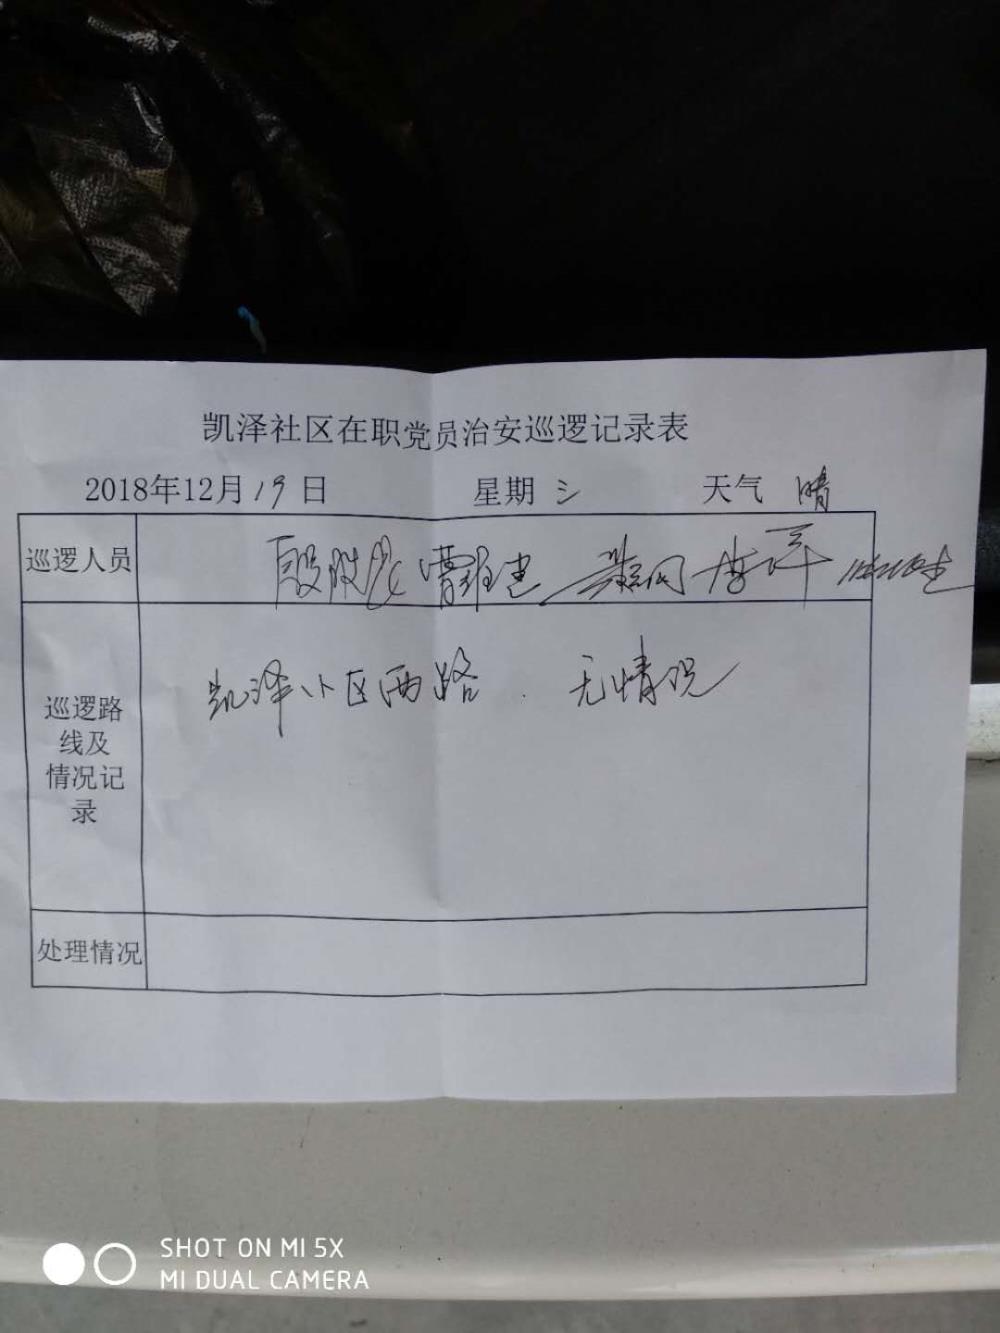 凯泽社区在职党员治安巡逻记录表
2018年12月19日 星期三 天气 晴
巡逻人员
巡逻路线及情况记录
凯泽小区西路. 无情况
处理情况
SHOT ON MI 5X
MI DUAL CAMERA